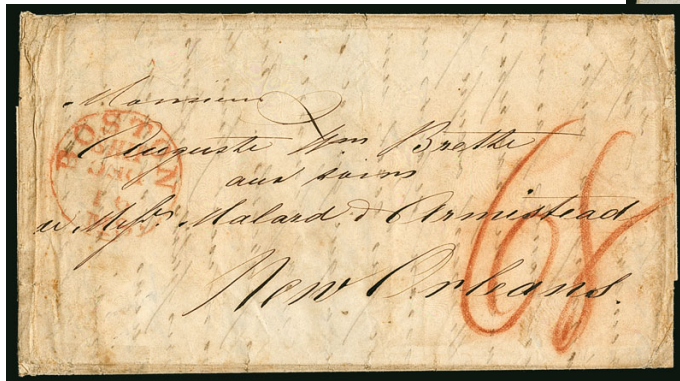 Monsieur
Auguste Wm Brethe
aux soins
de Messrs Malard & Armistead
New Orleans.
68
BOSTON
SHIP